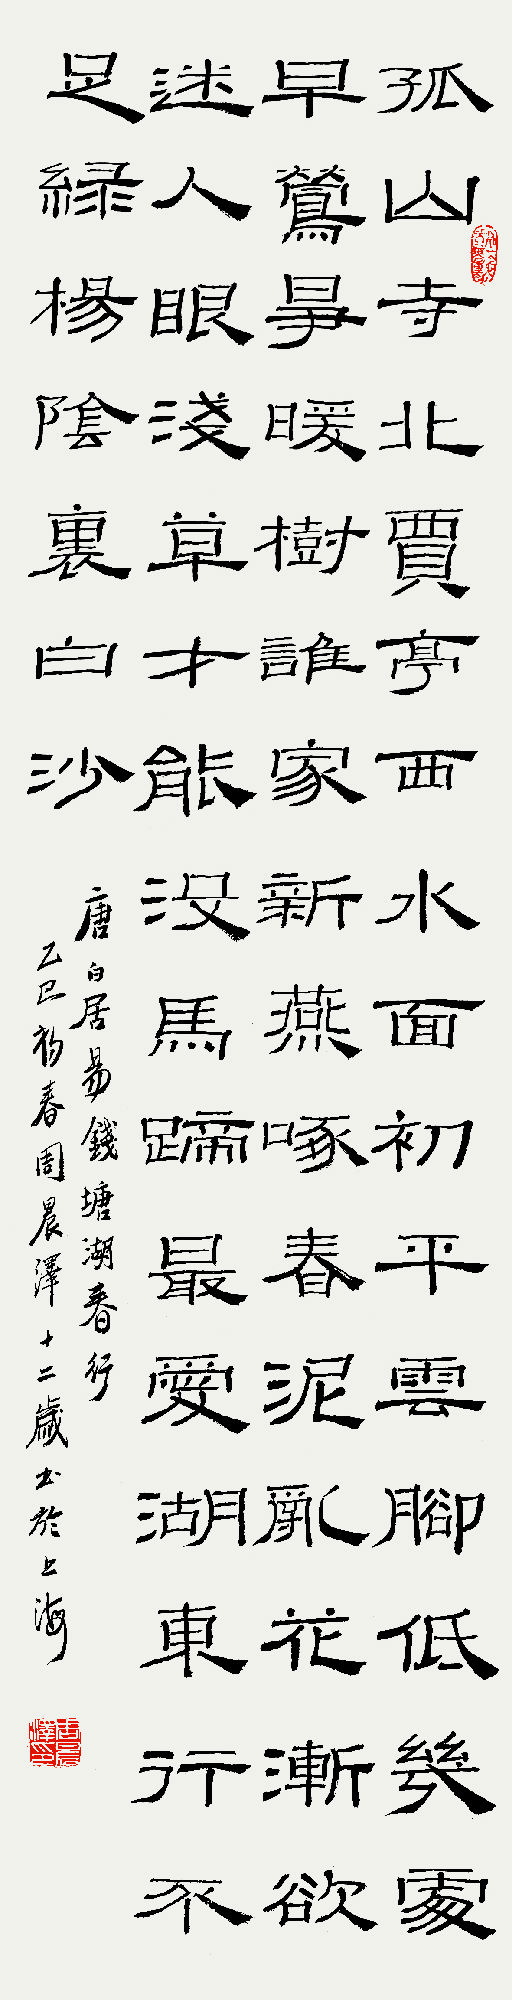 孤山寺北賈亭西水面初平雲腳低幾處
早鶯爭暖樹誰家新燕啄春泥亂花漸欲
迷人眼淺草才能没馬蹄最愛湖東行不
足綠楊陰裏白沙
唐白居易錢塘湖春行
乙巳初春周晨澤十二歲书於上海
周晨澤印